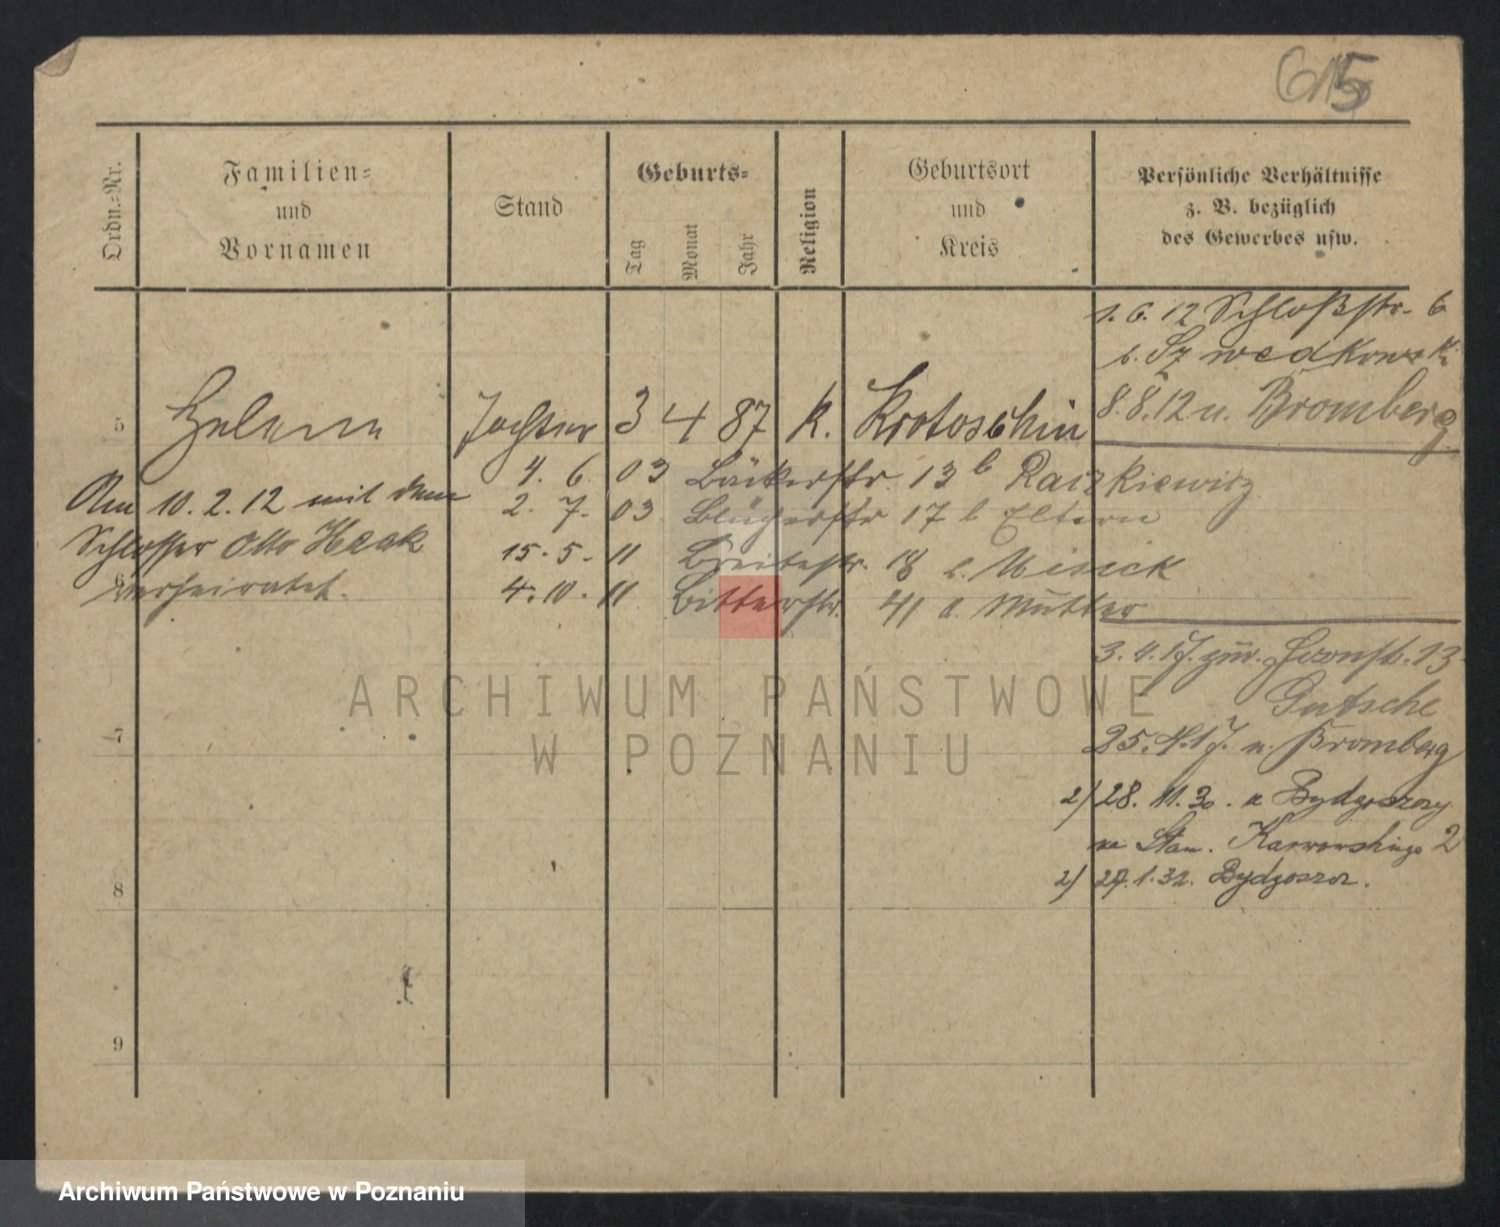 615
Ordn.-Nr.
Familien-
und
Vornamen
Stand
Geburts-
Tag
Monat
Jahr
Religion
Geburtsort
und
Kreis
Persönliche Verhältnisse
z. B. bezüglich
des Gewerbes usw.
1. 6. 12 Schloßstr. 6
b. Szwedkowski
8. 8. 12 n. Bromberg
5 Helene Tochter 3 4 87 k. Krotoschin
4. 6. 03 Bäckerstr. 13 b Raczkiewicz
Am 10. 2. 12 mit dem
2. 7. 03 Blücherstr 17 b Eltern
Schlosser Otto Haak
15. 5. 11 Breitestr. 18 b. Misick
6
verheiratet.
4. 10. 11 Bitterstr. 41 b. Mutter
3. 4. 17. zur. 13
Gutsche
7
25. 4. 17. n. Bromberg
2) 28. 11. 30. z Bydgoszczy
na Stan. Karwowskiego 2
8
2) 27. 1. 32. Bydgoszcz.
9
ARCHIWUM PAŃSTWOWE
W POZNANIU
Archiwum Państwowe w Poznaniu